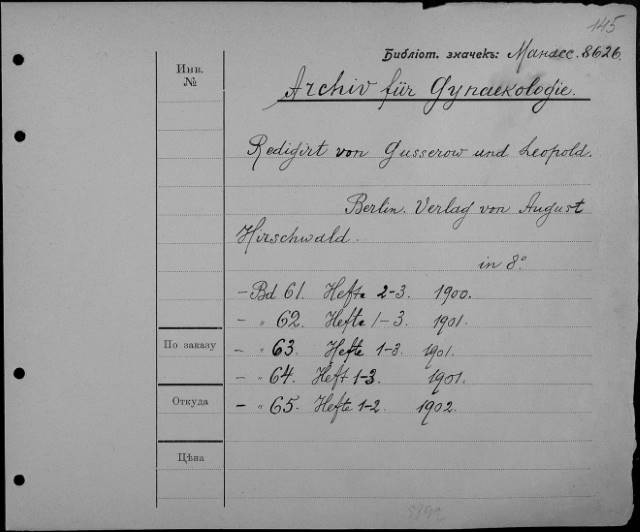 145
Библіот. значекъ: Манасс. 8626.
Инв.
№
Archiv für Gynaekologie.
Redigirt von Gusserow und Leopold.
Berlin. Verlag von August
Hirschwald.
in 8°
– Bd 61. Hefte 2-3. 1900.
– " 62. Hefte 1-3. 1901.
По заказу
– " 63. Hefte 1-3. 1901.
– " 64. Heft 1-3. 1901.
Откуда
– " 65. Hefte 1-2. 1902.
Цѣна